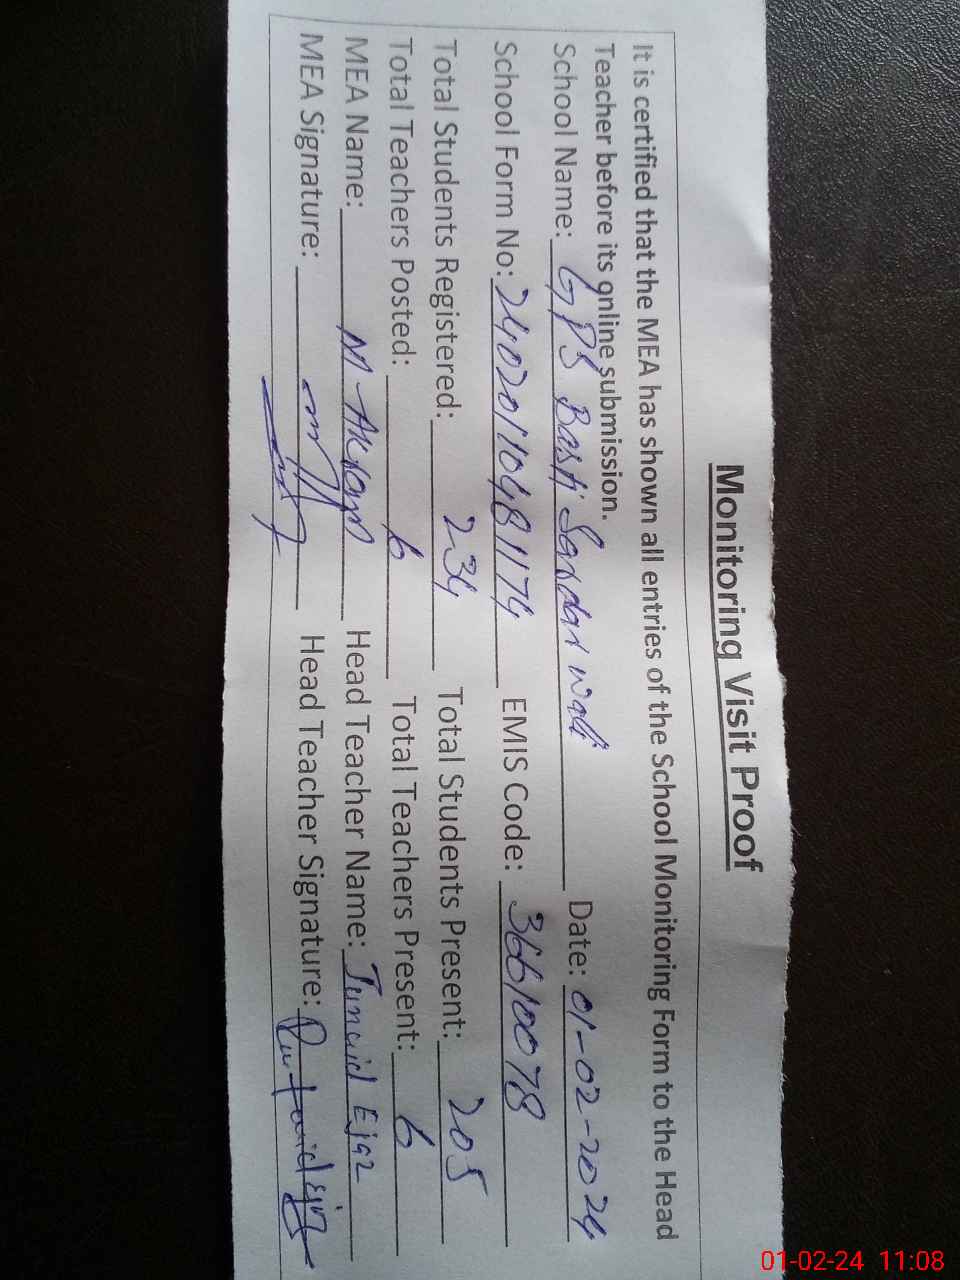 Monitoring Visit Proof
It is certified that the MEA has shown all entries of the School Monitoring Form to the Head
Teacher before its online submission.
School Name: GPS Basti Sardar wali Date: 01-02-2024
School Form No: 24020110481174 EMIS Code: 36610078
Total Students Registered: 234 Total Students Present: 205
Total Teachers Posted: 6 Total Teachers Present: 6
MEA Name: M Akram Head Teacher Name: Junaid Ejaz
MEA Signature: Head Teacher Signature:
01-02-24 11:08